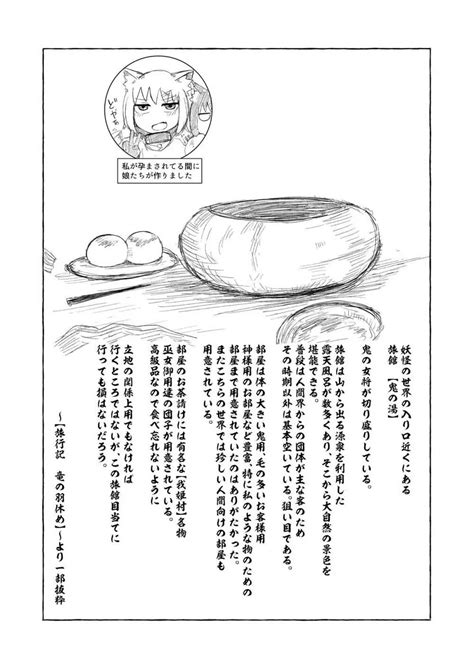 どやぁ
私が孕まされてる間に
娘たちが作りました
妖怪の世界の入り口近くにある
旅館【鬼の湯】
鬼の女将が切り盛りしている。
旅館は山から出る源泉を利用した
露天風呂が数多くあり、そこから大自然の景色を
堪能できる。
普段は人間界からの団体が主な客のため
その時期以外は基本空いている。狙い目である。
部屋は体の大きい鬼用、毛の多いお客様用
神様用のお部屋など豊富。特に私のような物のための
部屋まで用意されていたのはありがたかった。
またこちらの世界では珍しい人間向けの部屋も
用意されている。
部屋のお茶請けには有名な【我姫村】名物
巫女御用達の団子が用意されている。
高級品なので食べ忘れないように
立地の関係上用でもなければ
行くところではないが、この旅館目当てに
行っても損はないだろう。
～【旅行記　竜の羽休め】～より一部抜粋